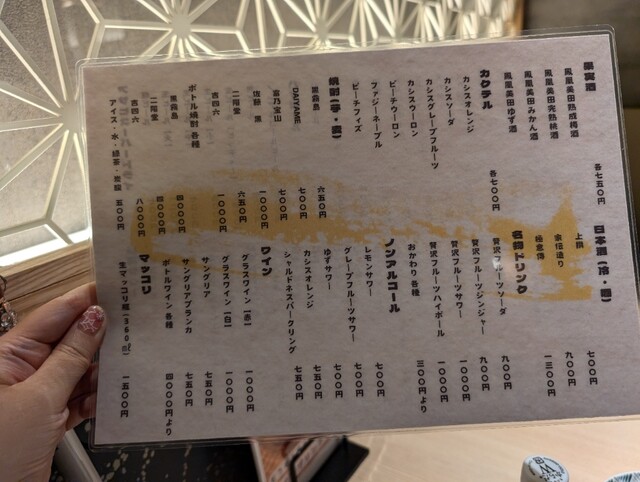 果実酒
鳳凰美田熟成梅酒
鳳凰美田完熟桃酒
鳳凰美田みかん酒
鳳凰美田ゆず酒
各七五〇円
カクテル
カシスオレンジ
カシスソーダ
カシスグレープフルーツ
カシスウーロン
ピーチウーロン
ファジーネーブル
ピーチフィズ
各七〇〇円
焼酎(芋・麦)
黒霧島 六五〇円
DAIYAME 七〇〇円
富乃宝山 七〇〇円
佐藤 黒 一〇〇〇円
二階堂 六五〇円
吉四六 一〇〇〇円
ボトル焼酎 各種
黒霧島 四〇〇〇円
二階堂 四〇〇〇円
吉四六 八〇〇〇円
アイス・水・緑茶・炭酸 五〇〇円
日本酒(冷・燗)
上撰 七〇〇円
余伝造り 九〇〇円
極意傳 一三〇〇円
名時ドリンク
贅沢フルーツソーダ 九〇〇円
贅沢フルーツジンジャー 九〇〇円
贅沢フルーツサワー 一〇〇〇円
贅沢フルーツハイボール 一〇〇〇円
おかわり 各種 三〇〇円より
ノンアルコール
レモンサワー 七〇〇円
グレープフルーツサワー 七〇〇円
ゆずサワー 七〇〇円
カシスオレンジ 七五〇円
シャルドネスパークリング 七五〇円
ワイン
グラスワイン【赤】 一〇〇〇円
グラスワイン【白】 一〇〇〇円
サングリア 七五〇円
サングリアブランカ 七五〇円
ボトルワイン 各種 四〇〇〇円より
マッコリ
生マッコリ瓶(360ml) 一五〇〇円